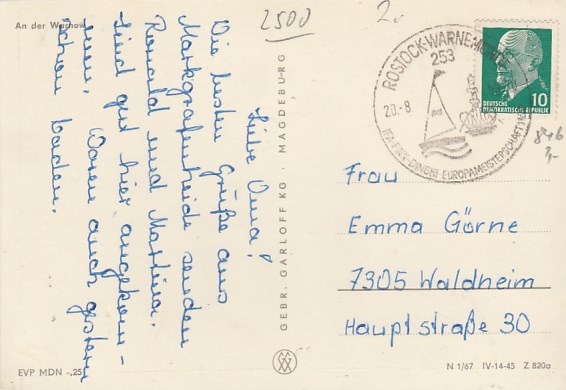 An der Warnow
2500
Liebe Oma!
Die besten Grüße aus
Markgrafenheide senden
Ronald und Martina.
Sind gut hier angekom-
men. Waren auch gestern
schon baden.
GEBR. GARLOFF KG · MAGDEBURG
ROSTOCK-WARNEMÜNDE
253
20.-8
EUROPAMEISTERSCHAFT
DEUTSCHE
DEMOKRATISCHE REPUBLIK
10
846
Frau
Emma Görne
7305 Waldheim
Hauptstraße 30
EVP MDN -,25
N 1/67 IV-14-45 Z 820a